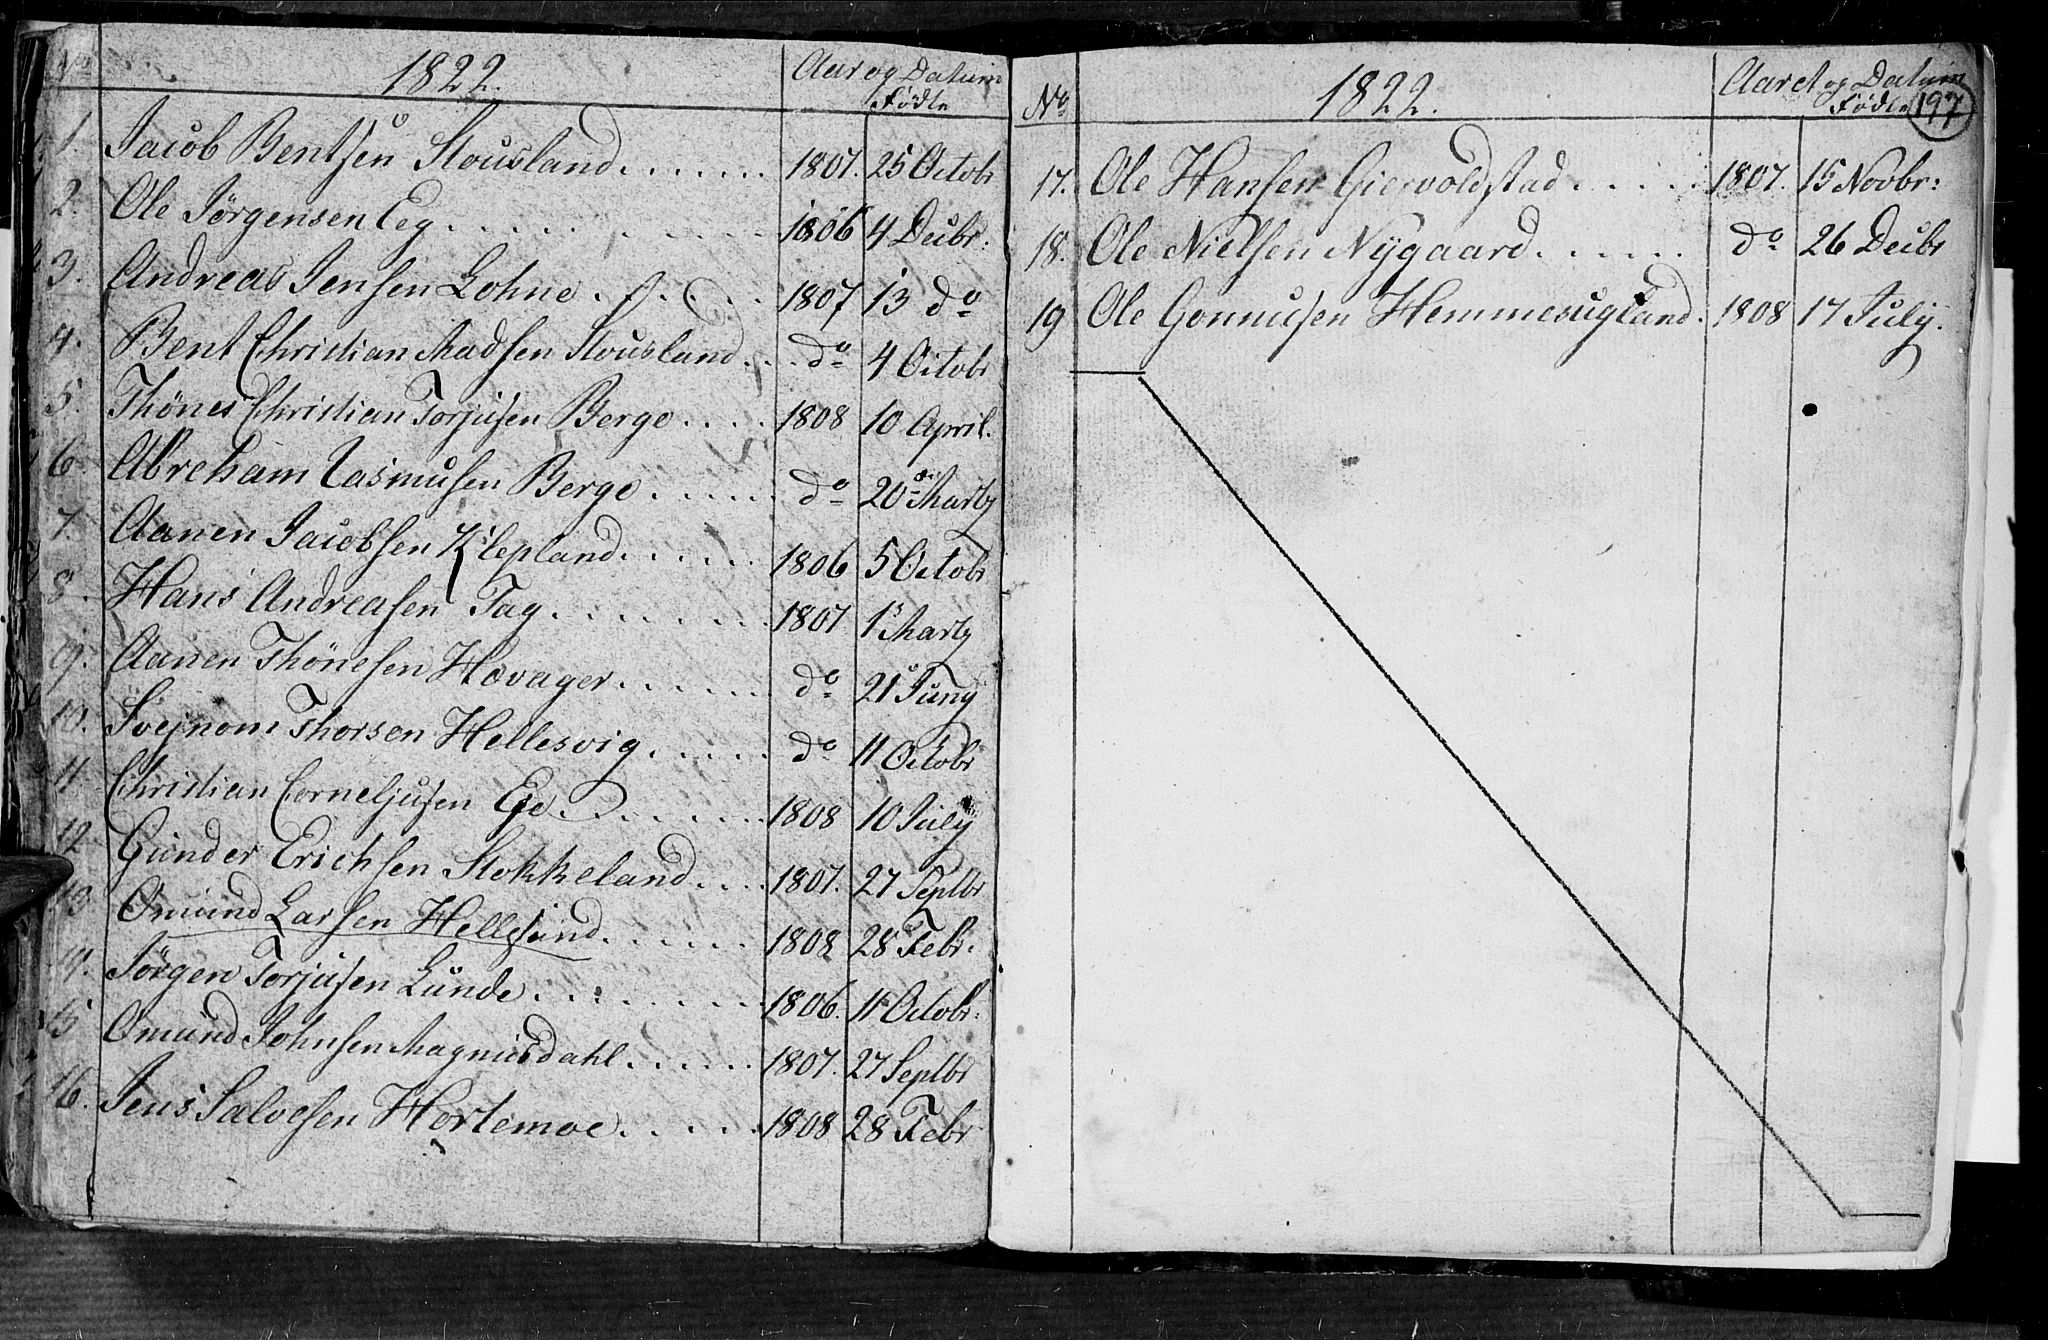 No 1822. Aar og Datum
Fødte
1. Jacob Bentsen Stousland....... 1807. 25 Octobr
2. Ole Jørgensen Eeg......... 1806 4 Decbr:
3. Andreas Jensen Lohne...... 1807 13 do
4. Bent Christian Madsen Stousland.... do 4 Octobr
5. Thönes Christian Torjusen Berge.... 1808 10 April.
6. Abreham Rasmusen Berge....... do 20de Marty
7. Aanen Jacobsen Klepland...... 1806 5 Octobr
8. Hans Andreasen Tag....... 1807 1s Marty
9. Aanen Thönesen Hovager...... do 21 Juny
10. Svejnom Thorsen Hellesvig...... do 11 Octobr
11. Christian Corneljusen Ege....... 1808 10 July
12. Gunder Erichsen Stokkeland.... 1807. 27 Septbr
13. Omund Larsen Hellesund...... 1808 28 Febr.
14. Jørgen Torjusen Lunde........ 1806. 11 Octobr.
15 Omund Johnsen Magnusdahl...... 1807. 27 Septbr
16. Jens Salvesen Hortemoe..... 1808 28 Febr
No 1822. Aaret og Datum
Fødte 197
17. Ole Hansen Giervoldstad..... 1807. 15 Novbr:
18. Ole Nielsen Nÿgaard...... do 26 Decbr
19 Ole Gonnusen Hemmesugland. 1808 17 July.